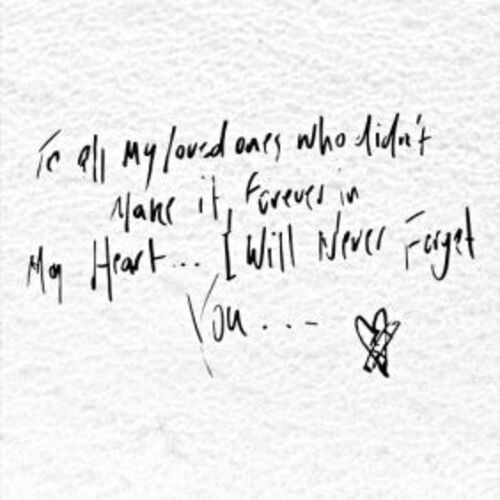 To all My loved ones who didn't
Make it Forever in
My Heart... I Will Never Forget
You...